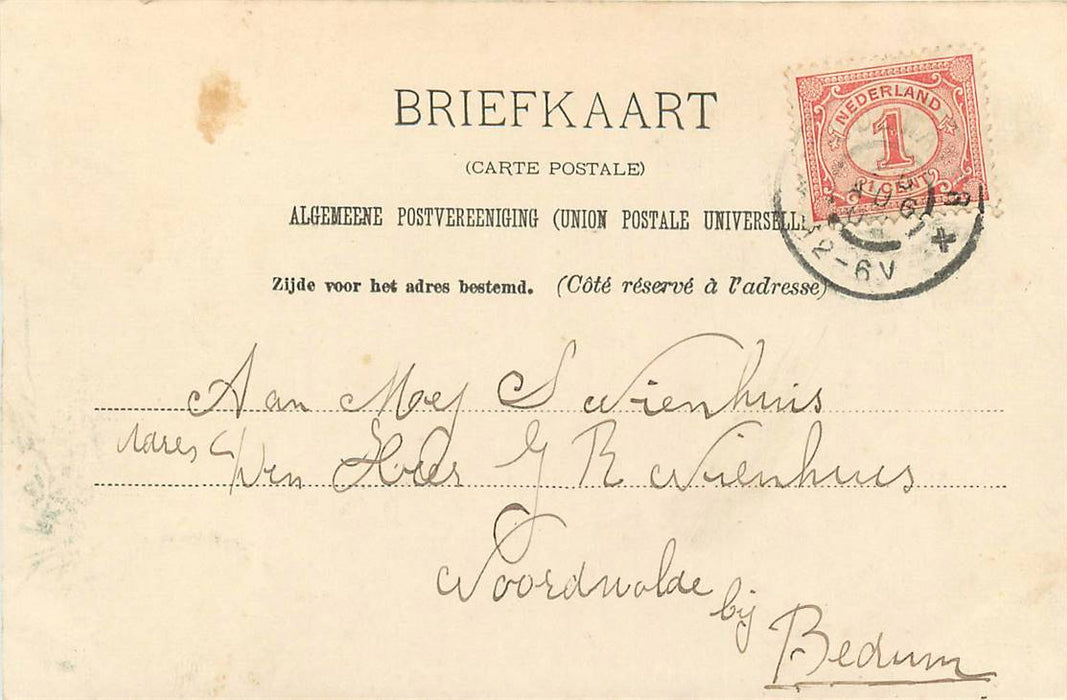 BRIEFKAART
(CARTE POSTALE)
ALGEMEENE POSTVEREENIGING (UNION POSTALE UNIVERSELLE
Zijde voor het adres bestemd. (Côté réservé à l'adresse)
NEDERLAND
1
1 CENT
12-6V
Aan Mej S Wienhuis
Adres Den Heer G R Wienhuis
Noordwolde
bij
Bedum